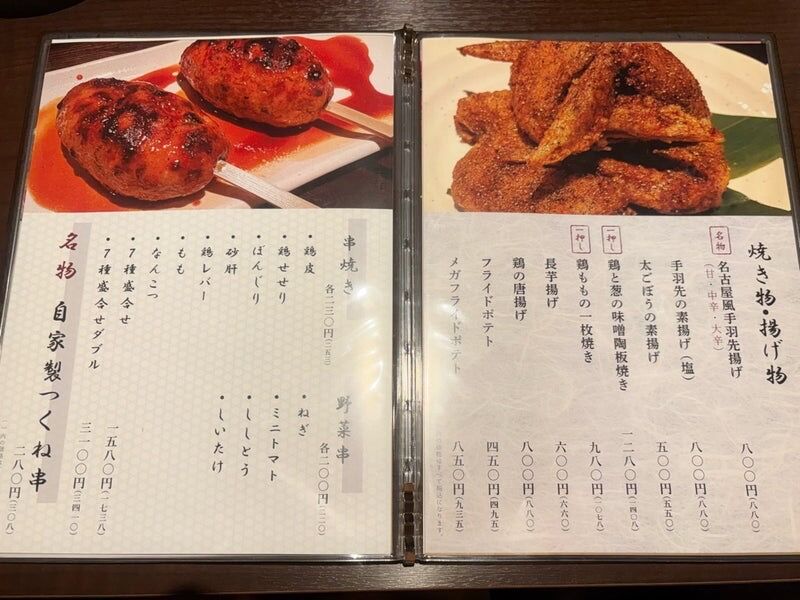 焼き物・揚げ物
名物
名古屋風手羽先揚げ
(甘・中辛・大辛)
八〇〇円(八八〇)
手羽先の素揚げ(塩)
八〇〇円(八八〇)
太ごぼうの素揚げ
五〇〇円
一押し
鶏と葱の味噌陶板焼き
一二八〇円(一四〇八)
一押し
鶏ももの一枚焼き
九八〇円(一〇七八)
長芋揚げ
六〇〇円(六六〇)
鶏の唐揚げ
八〇〇円(八八〇)
フライドポテト
四五〇円(四九五)
メガフライドポテト
八五〇円(九三五)
串焼き
各二三〇円(二五三)
・鶏皮
・鶏せせり
・ぼんじり
・砂肝
・鶏レバー
・もも
・なんこつ
・7種盛合せ
一五八〇円(一七三八)
・7種盛合せダブル
三一〇〇円(三四一〇)
野菜串
各二〇〇円(二二〇)
・ねぎ
・ミニトマト
・ししとう
・しいたけ
名物 自家製つくね串
二八〇円(三〇八)